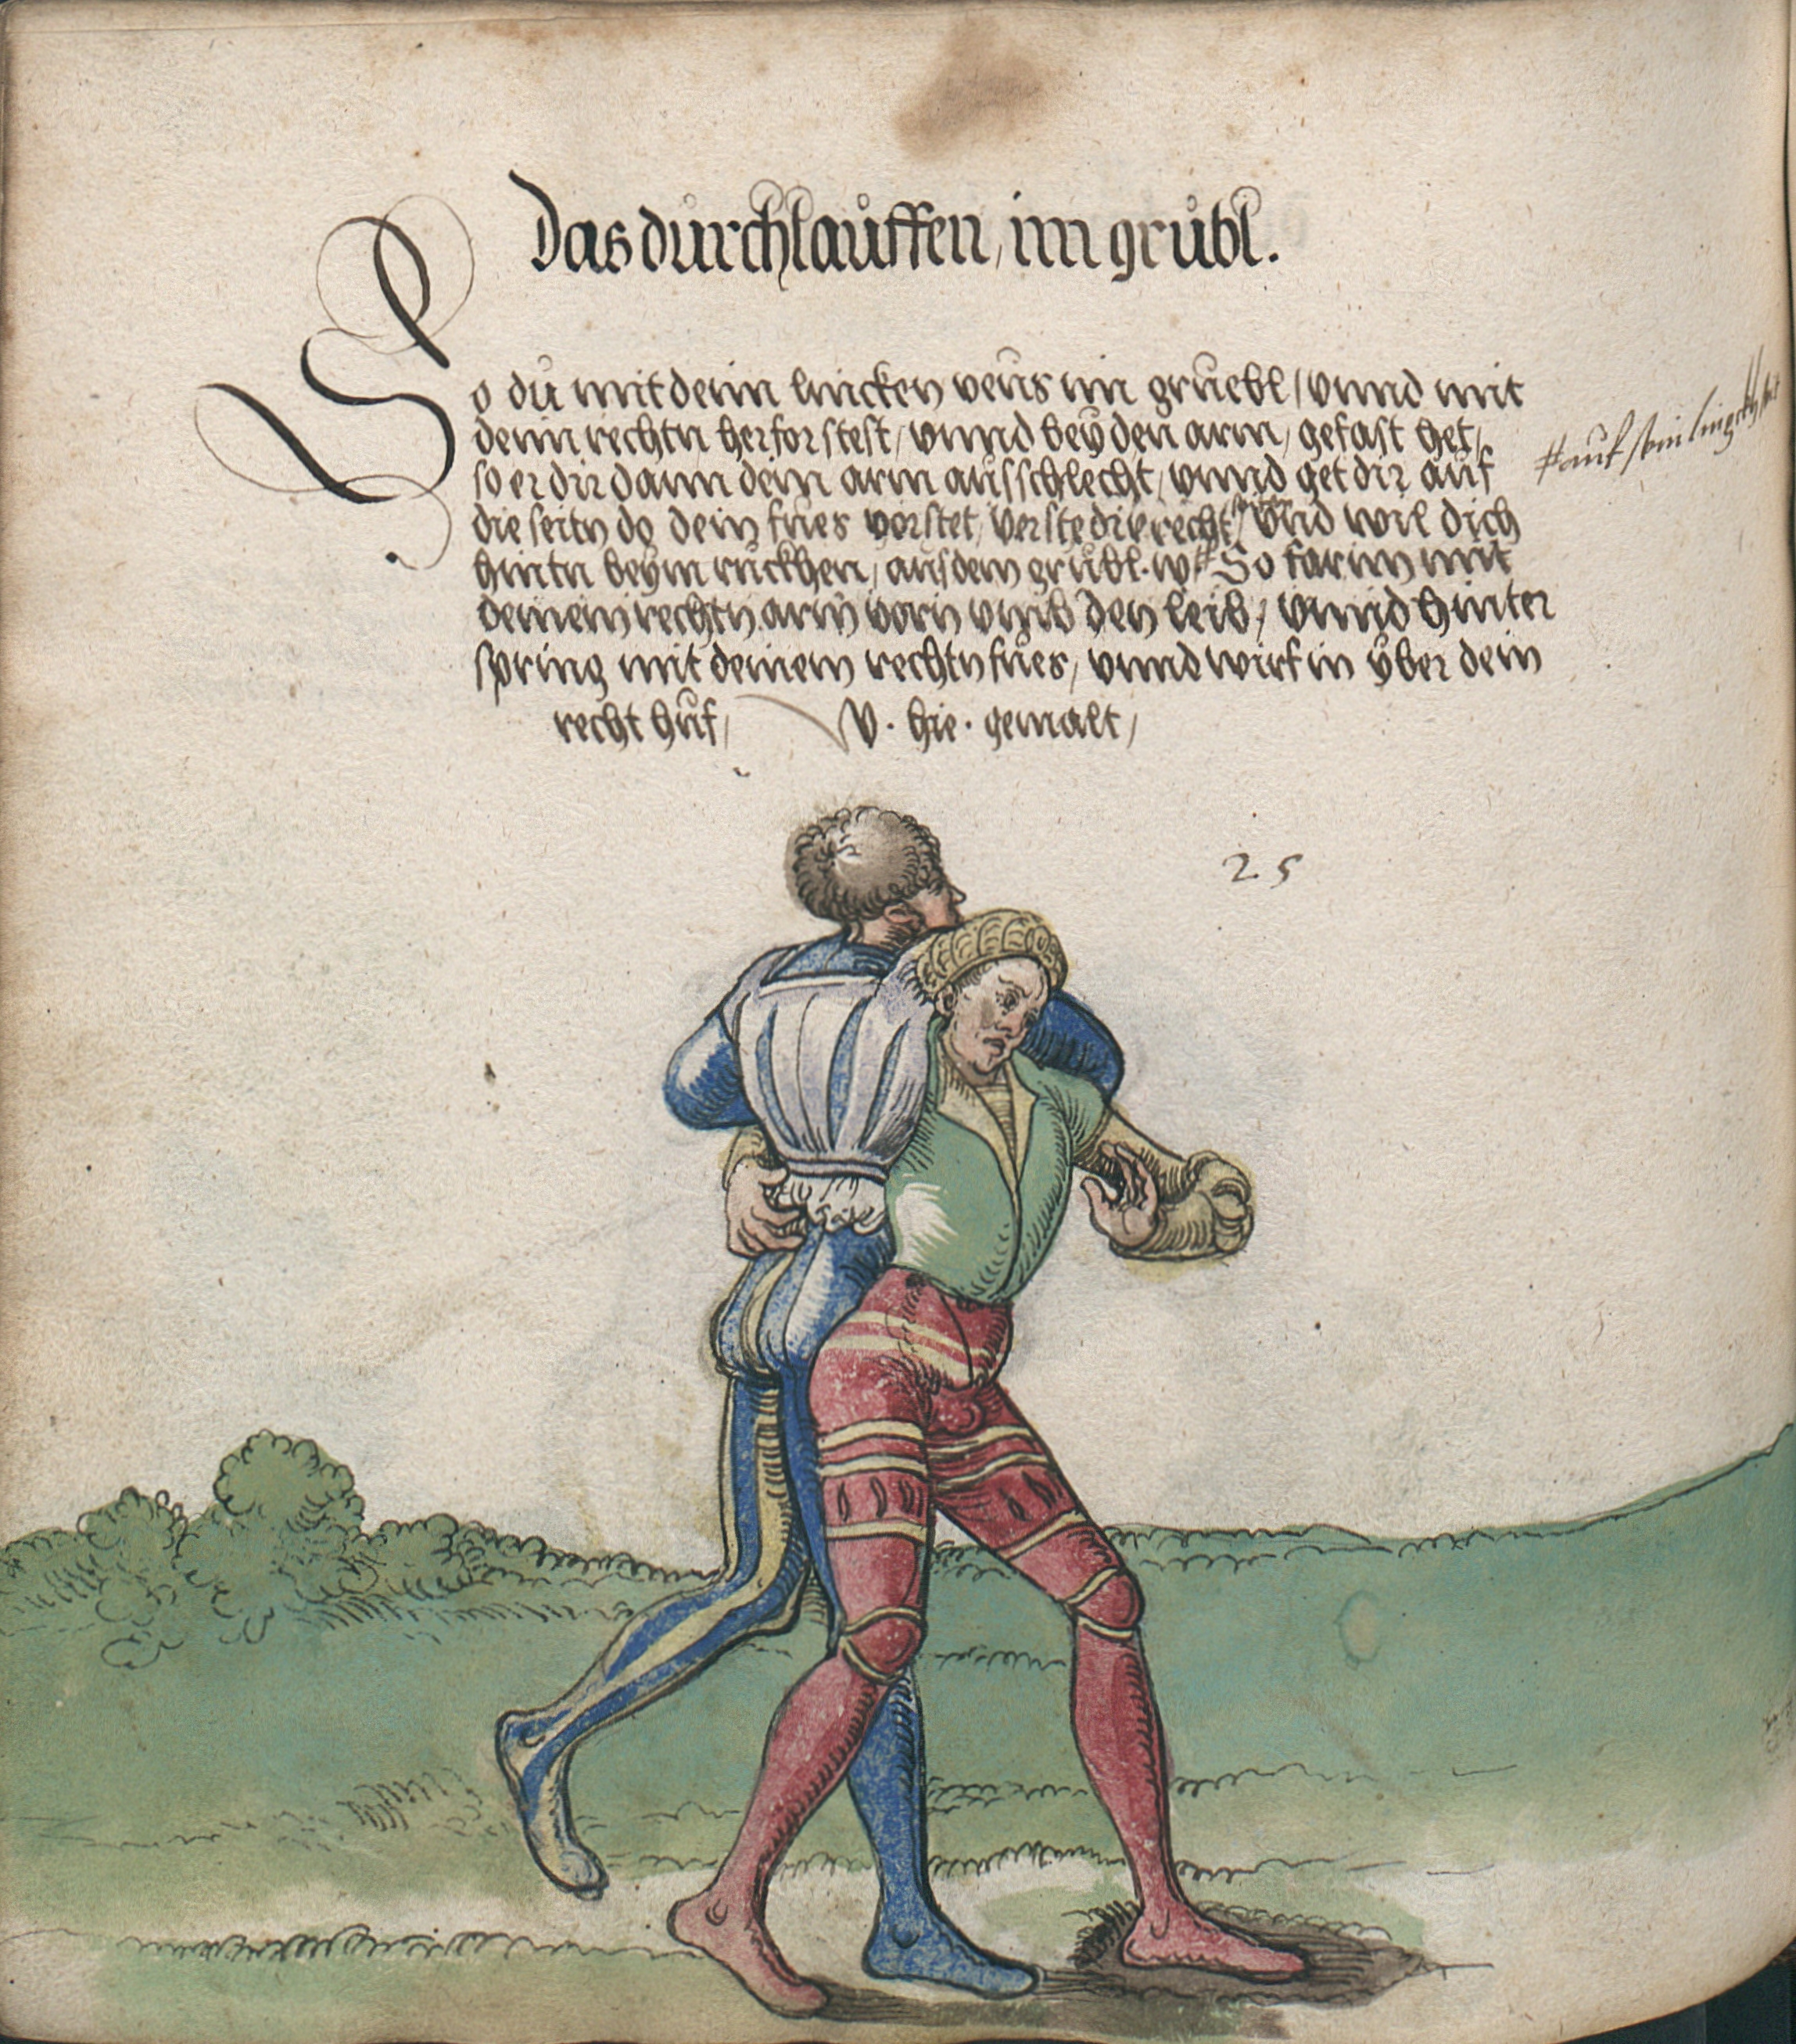 Das durchlauffen, im grübl.
So du mit dem lincken veus im gruebl / vnnd mit
dem rechtn herfor stest / vnnd bey den arm / gefast het /
so er dir dann dein arm ausschlecht / vnnd get dir auf
die seitn do dein fues vorstet / verstee die recht / vnd wil dich
hintn beym ruckhen / aus dem grübl. w# So far im mit
deinem rechtn arm vorn vmb den leib / vnnd hinter
spring mit deinem rechtn fues / vnnd wirf in yber dein
recht huf / V. hie. gemalt /
# auf sein
25